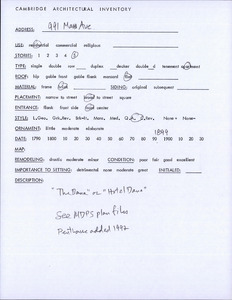 CAMBRIDGE ARCHITECTURAL INVENTORY
ADDRESS: 991 Mass Ave
USE: residential commercial religious
STORIES: 1 2 3 4 5
TYPE: single double row duplex decker double d tenement apartment
ROOF: hip gable front gable flank mansard flat
MATERIAL: frame brick SIDING: original subsequent
PLACEMENT: narrow to street wide to street square
ENTRANCE: flank front side front center
ORNAMENT: little moderate elaborate
1899
DATE: 1790 1800 10 20 30 40 50 60 70 80 90 1900 10 20 30
MAP:
REMODELING: drastic moderate minor CONDITION: poor fair good excellent
IMPORTANCE TO SETTING: detrimental none moderate great INITIALED:
DESCRIPTION:
"The Dana" or "Hotel Dana"
See MDPS plan files
Penthouse added 1992